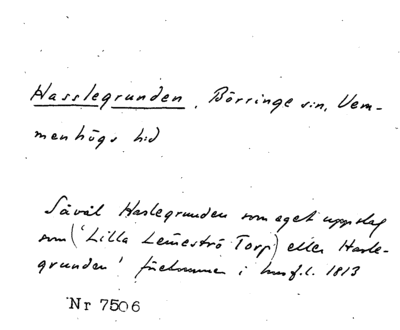 Hasslegrunden, Börringe sn, Vem-
menhögs hd
Såväl Haslegrunden som eget uppslag
som ('Lilla Lemeströ Torp) eller Hasle-
grunden' förekommer i husf.l. 1813
Nr 7506